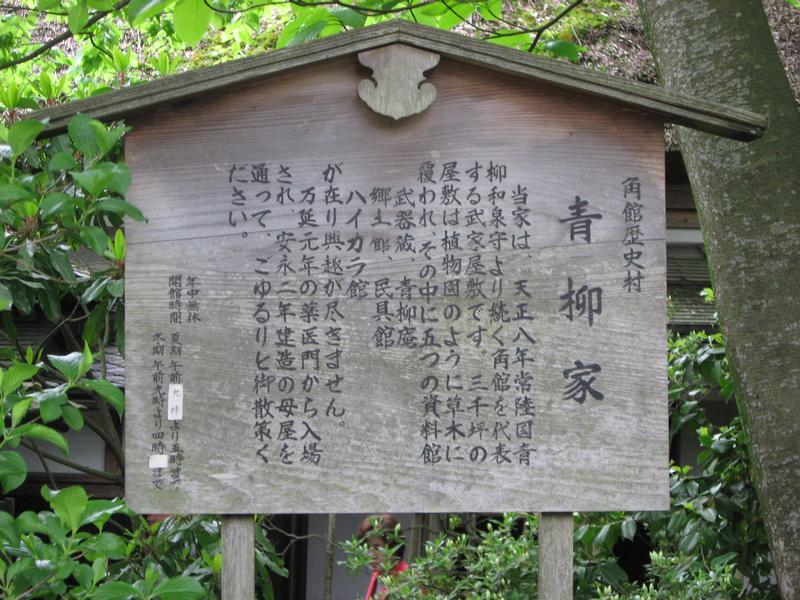 角館歴史村
青柳家
当家は、天正八年常陸国青
柳和泉守より続く角館を代表
する武家屋敷です。三千坪の
屋敷は植物園のように草木に
覆われ、その中に五つの資料館
武器蔵、青柳庵、
郷土館、民具館
ハイカラ館
が在り興趣が尽きません。
万延元年の薬医門から入場
され、安永二年建造の母屋を
通って、ごゆるりと御散策く
ださい。
年中無休
開館時間 夏期 午前九時より五時まで
冬期 午前九時より四時まで